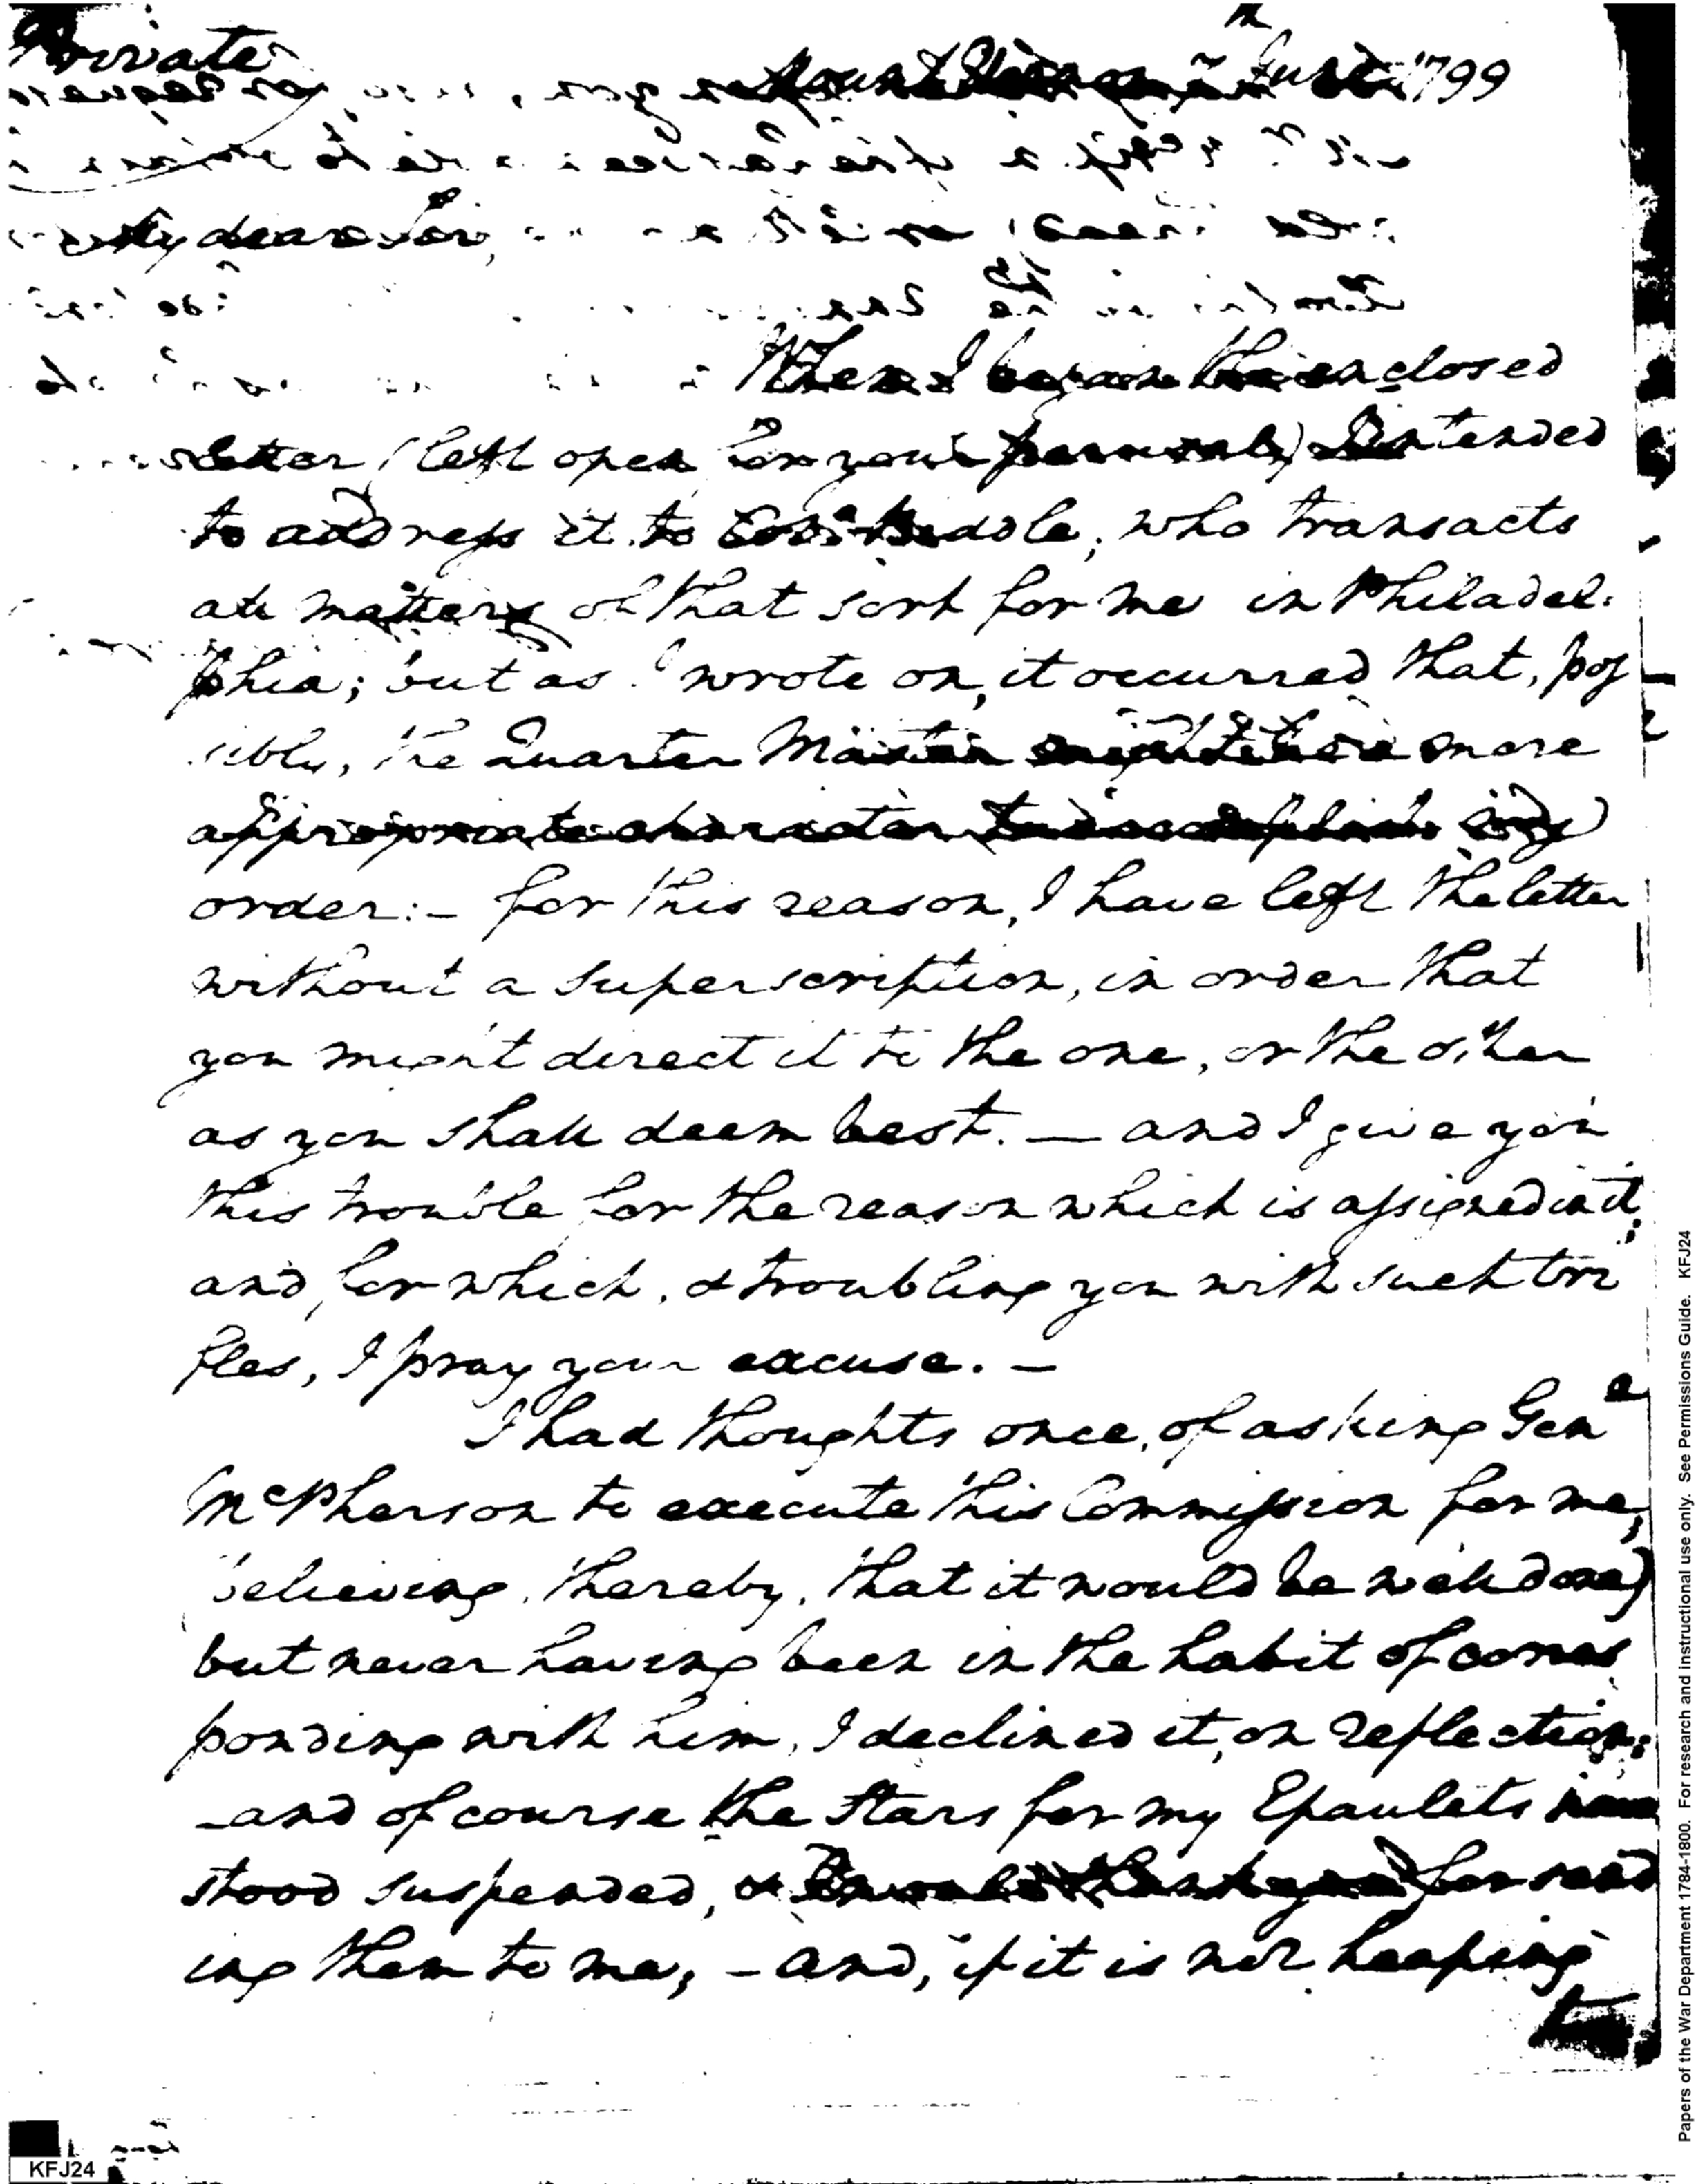 Private
Mount Vernon 7th June 1799
My dear Sir,
When I began the enclosed
letter (left open for your perusal) I intended
to address it to Colo. Biddle, who transacts
all matters of that sort for me in Philadel:
phia; but as I wrote on, it occurred that, pos
sibly, the Quarter Master might be a more
appropriate character to accomplish my
order:— for this reason, I have left the letter
without a superscription, in order that
you might direct it to the one, or the other
as you shall deem best. — and I give you
this trouble for the reason which is assigned in it;
and for which, & troubling you with such tri
fles, I pray your excuse. —
I had thoughts once, of asking Genl
McPherson to execute this Commission for me;
believing, thereby, that it would be well done)
but never having been in the habit of corres
ponding with him, I declined it, on reflection;
—and of course the Stars for my Epaulets have
stood suspended, & I would thank you for send
ing them to me; —and, if it is not heaping
Papers of the War Department 1784-1800. For research and instructional use only. See Permissions Guide. KFJ24
KFJ24